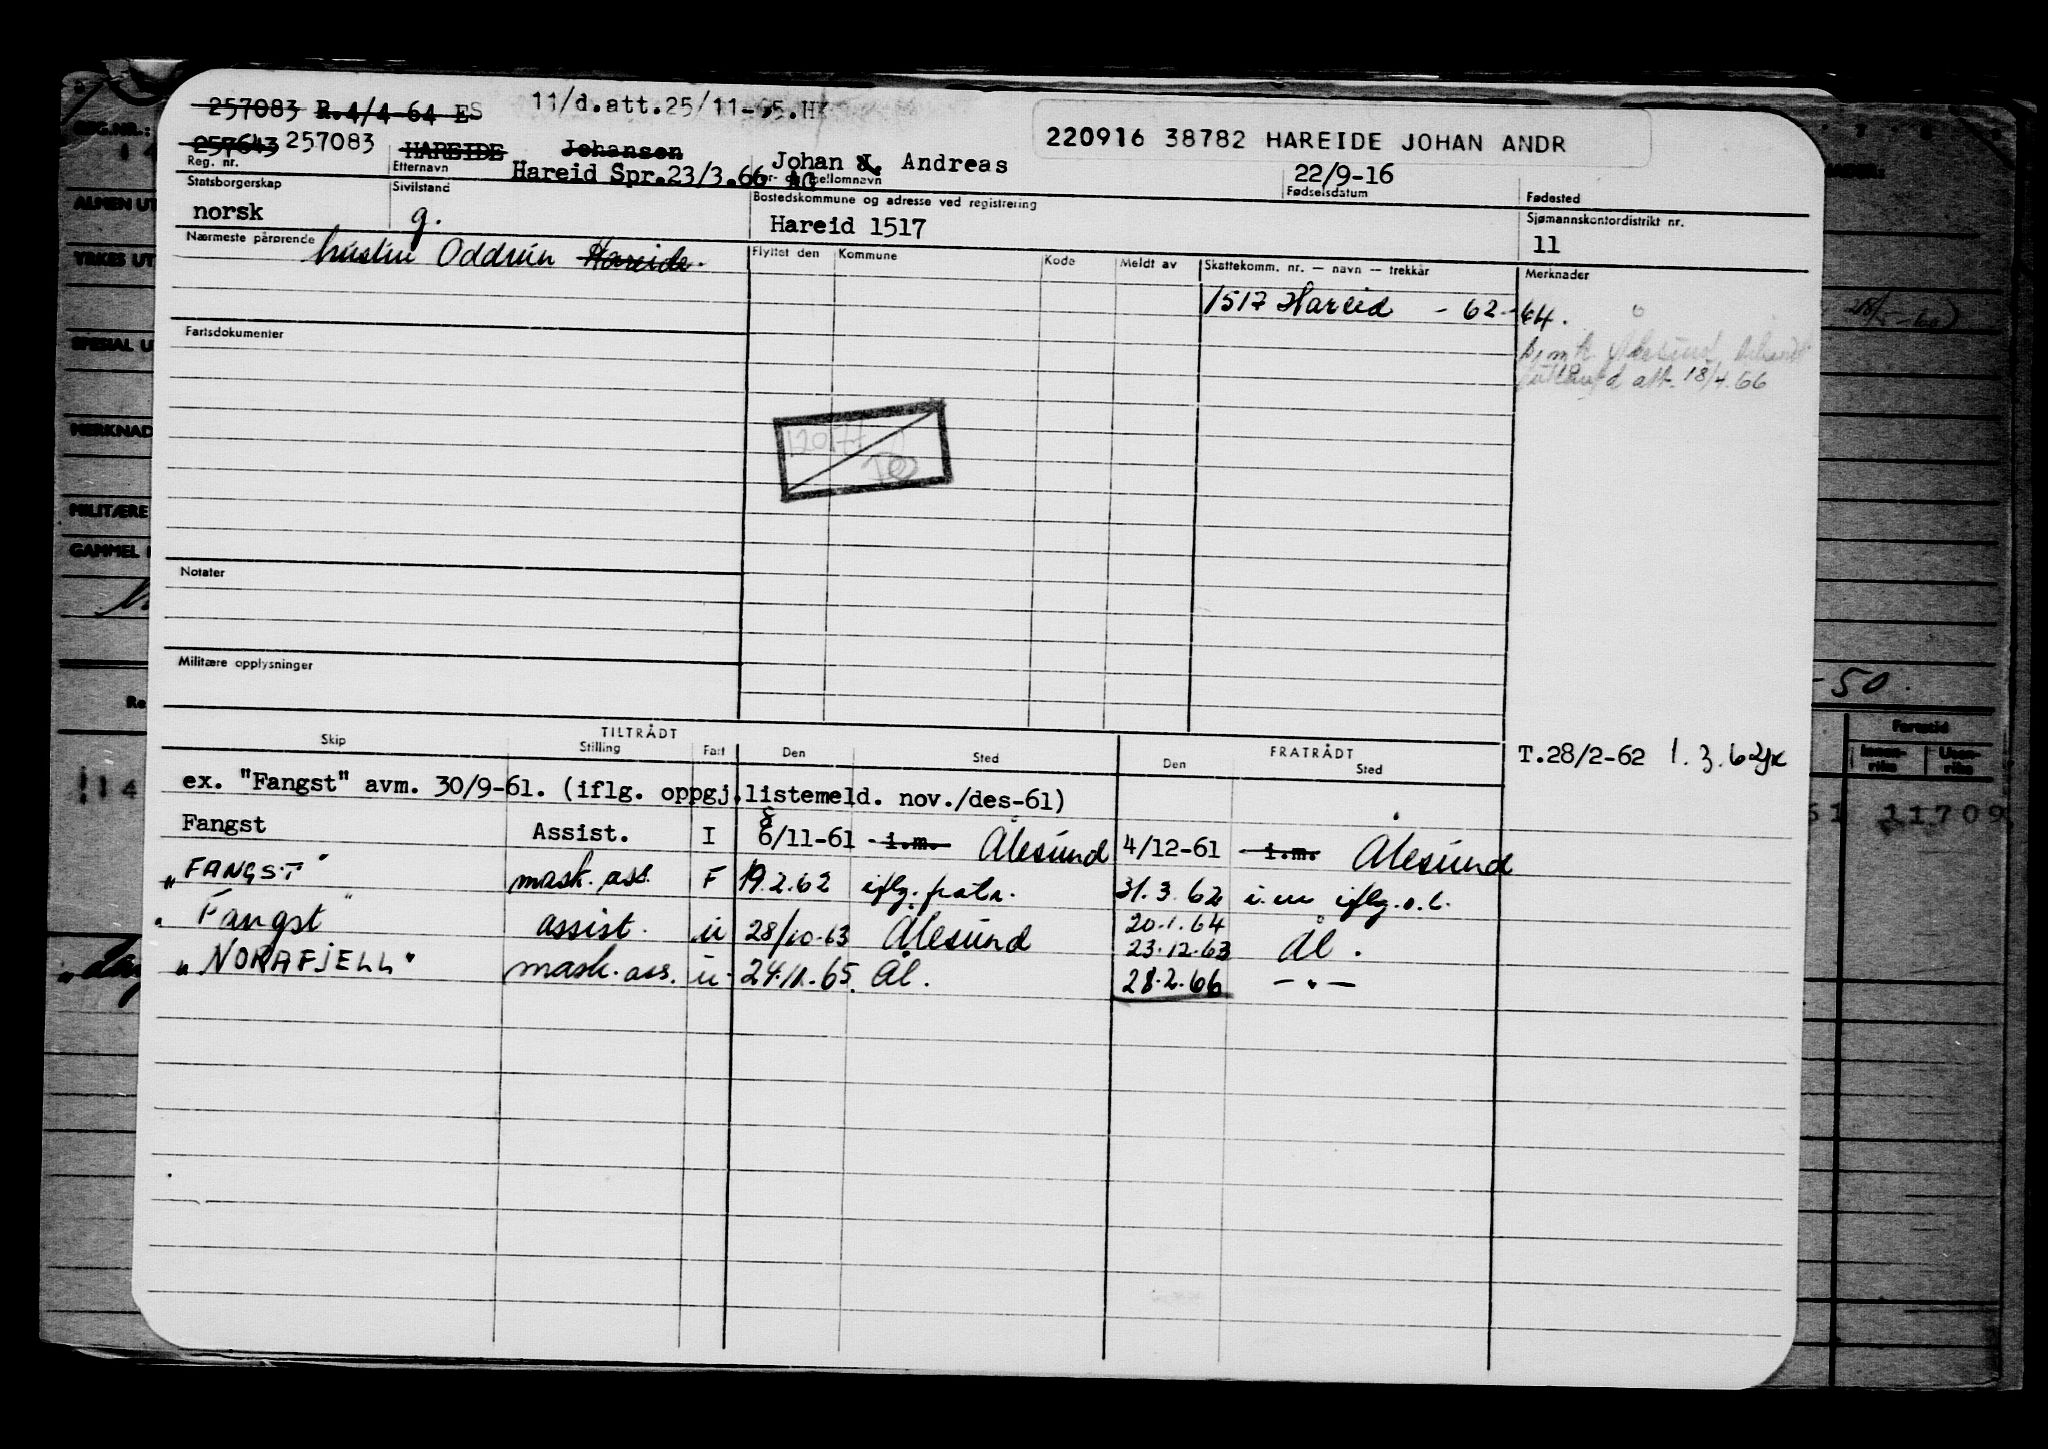 257083 R.4/4-64 ES 11/d.att.25/11-65.HK
220916 38782 HAREIDE JOHAN ANDR
257643 257083 HAREIDE Johansen Johan J. Andreas 22/9-16
Reg. nr. Etternavn Hareid Spr.23/3.66 AG For- og mellomnavn Fødselsdatum Fødested
Statsborgerskap Sivilstand Bostedskommune og adresse ved registrering Sjømannskontordistrikt nr.
norsk g. Hareid 1517 11
Nærmeste pårørende hustru Oddrun Hareide.
Flyttet den Kommune Kode Meldt av Skattekomm. nr. — navn — trekkår Merknader
1517 Hareid - 62-64.
Ålesund
att. 18/4.66
Fartsdokumenter
Notater
Militære opplysninger
TILTRÅDT FRATRÅDT
Skip Stilling Fart Den Sted Den Sted
T.28/2-62 1.3.62
ex. "Fangst" avm. 30/9-61. (iflg. oppgj.listemeld. nov./des-61)
8
Fangst Assist. I 6/11-61 i.m. Ålesund 4/12-61 i.m. Ålesund
"FANGST" mask. ass. F 19.2.62 iflg. fratr. 31.3.62 i.m iflg.o.l.
20.1.64
"Fangst" assist. u 28/10-63 Ålesund 23.12.63 Ål.
"NORAFJELL" mask. ass. u 24.11.65. Ål. 28.2.66 — " —
REG.NR.:
ALMEN UT
YRKES UT
SPESIAL U
MERKNAD
MILITÆRE
GAMMEL
-50.
Fartstid
Innen-
riks
Uten-
riks
14
61 11709